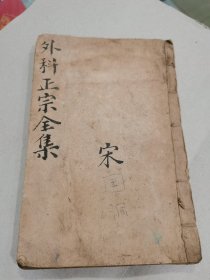 外科正宗全集
宋